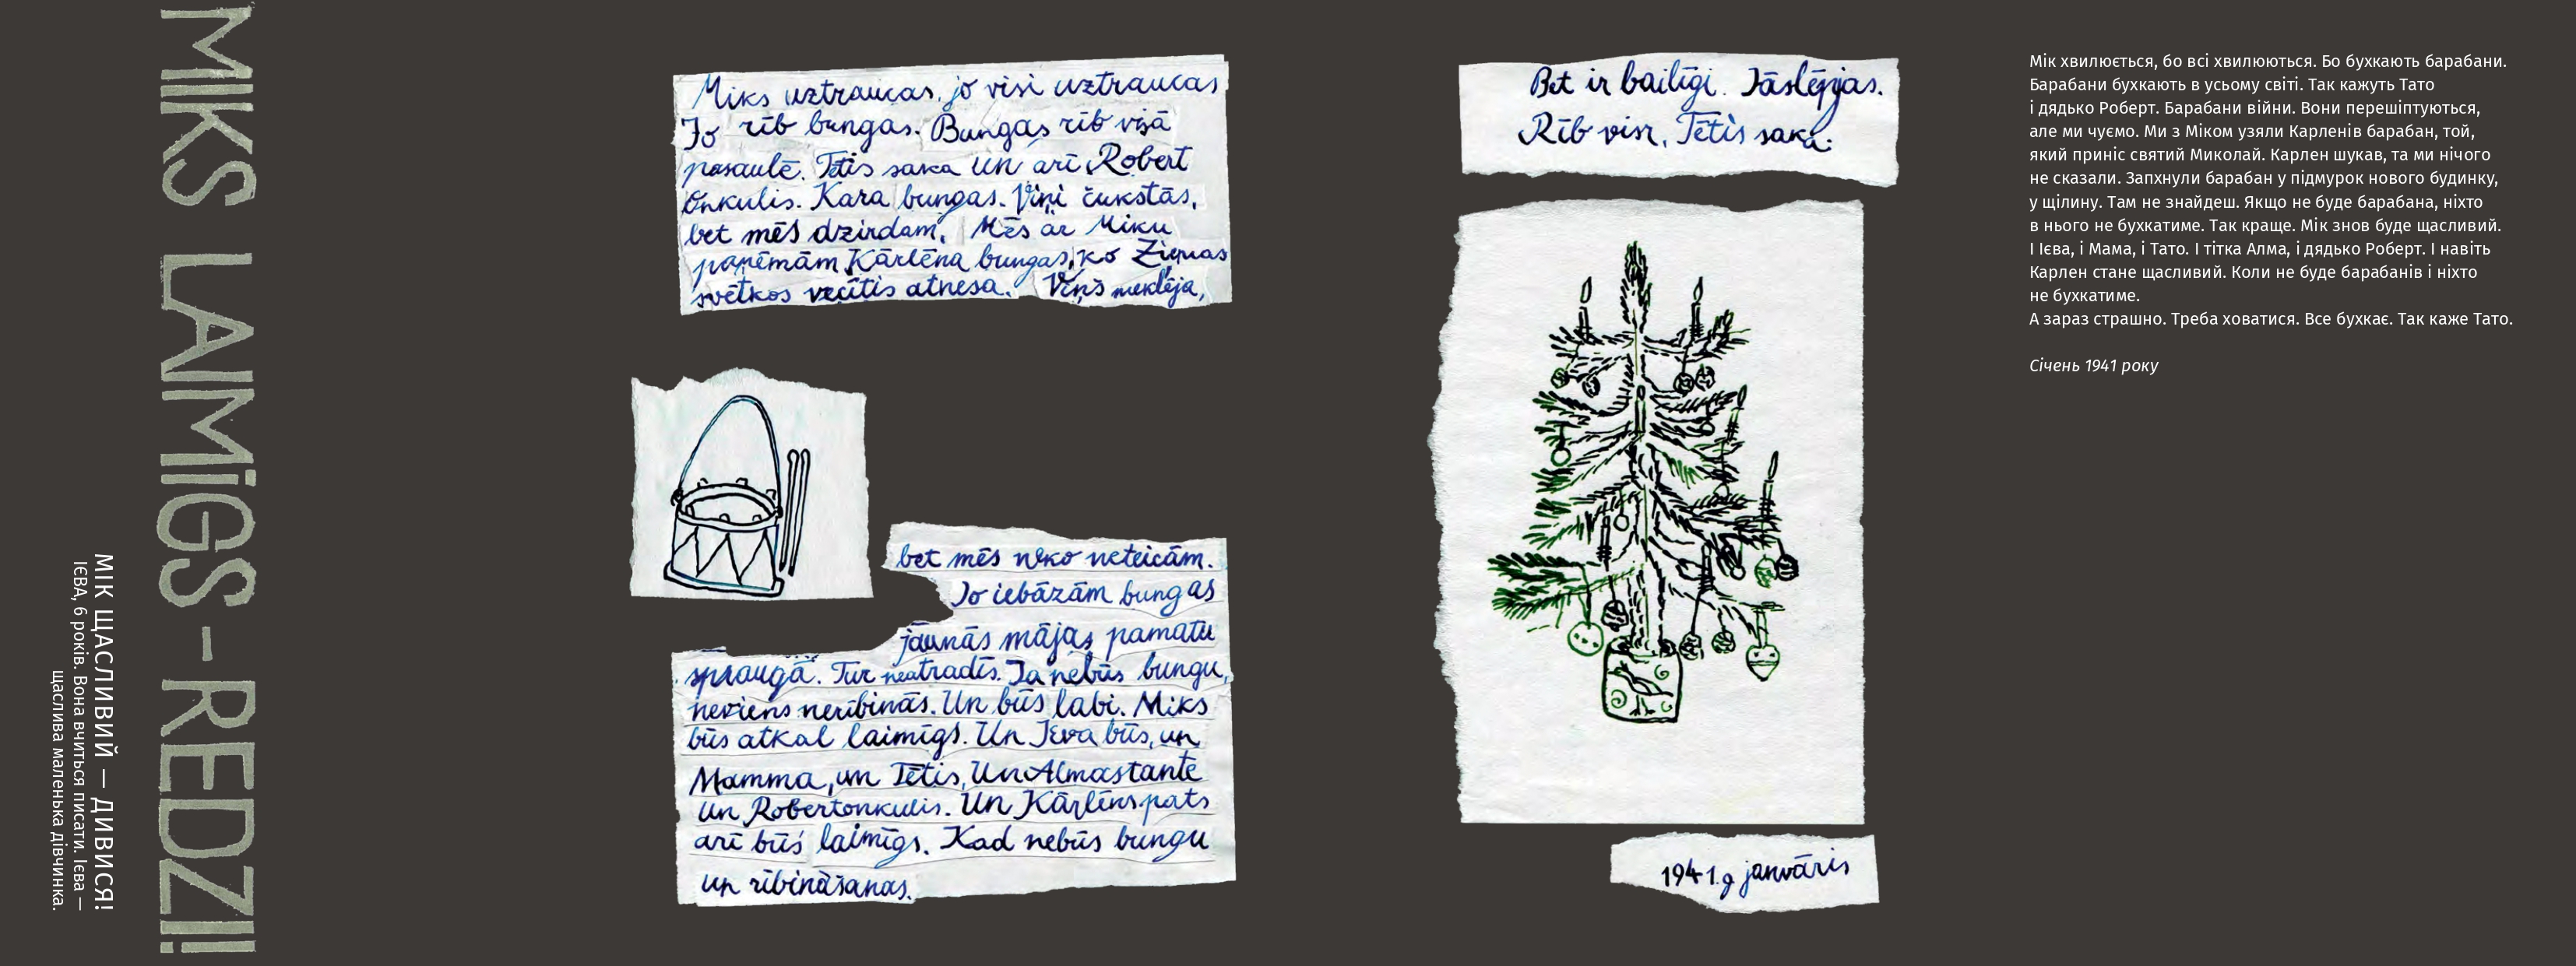 MIKS LAIMĪGS – REDZI!
МІК ЩАСЛИВИЙ — ДИВИСЯ!
ІЄВА, 6 років. Вона вчиться писати. Ієва —
щаслива маленька дівчинка.
Miks uztraucas, jo visi uztraucas
Jo rīb bungas. Bungas rīb visā
pasaulē. Tētis saka un arī Robert
onkulis. Kara bungas. Viņi čukstās,
bet mēs dzirdam. Mēs ar Miku
paņēmām Kārlēna bungas, ko Ziemas
svētkos vecītis atnesa. Viņš meklēja,
bet mēs neko neteicām.
Jo iebāzām bungas
jaunās mājas pamatu
spraugā. Tur neatradīs. Ja nebūs bungu,
neviens neribinās. Un būs labi. Miks
būs atkal laimīgs. Un Ieva būs, un
Mamma, un Tētis, Un Almastante
un Robertonkulis. Un Kārlēns pats
arī būs laimīgs. Kad nebūs bungu
un ribināšanas.
Bet ir bailīgi. Jāslēpjas.
Rīb viss, Tētis saka.
1941.g janvāris
Мік хвилюється, бо всі хвилюються. Бо бухкають барабани.
Барабани бухкають в усьому світі. Так кажуть Тато
і дядько Роберт. Барабани війни. Вони перешіптуються,
але ми чуємо. Ми з Міком узяли Карленів барабан, той,
який приніс святий Миколай. Карлен шукав, та ми нічого
не сказали. Запхнули барабан у підмурок нового будинку,
у щілину. Там не знайдеш. Якщо не буде барабана, ніхто
в нього не бухкатиме. Так краще. Мік знов буде щасливий.
І Ієва, і Мама, і Тато. І тітка Алма, і дядько Роберт. І навіть
Карлен стане щасливий. Коли не буде барабанів і ніхто
не бухкатиме.
А зараз страшно. Треба ховатися. Все бухкає. Так каже Тато.
Січень 1941 року